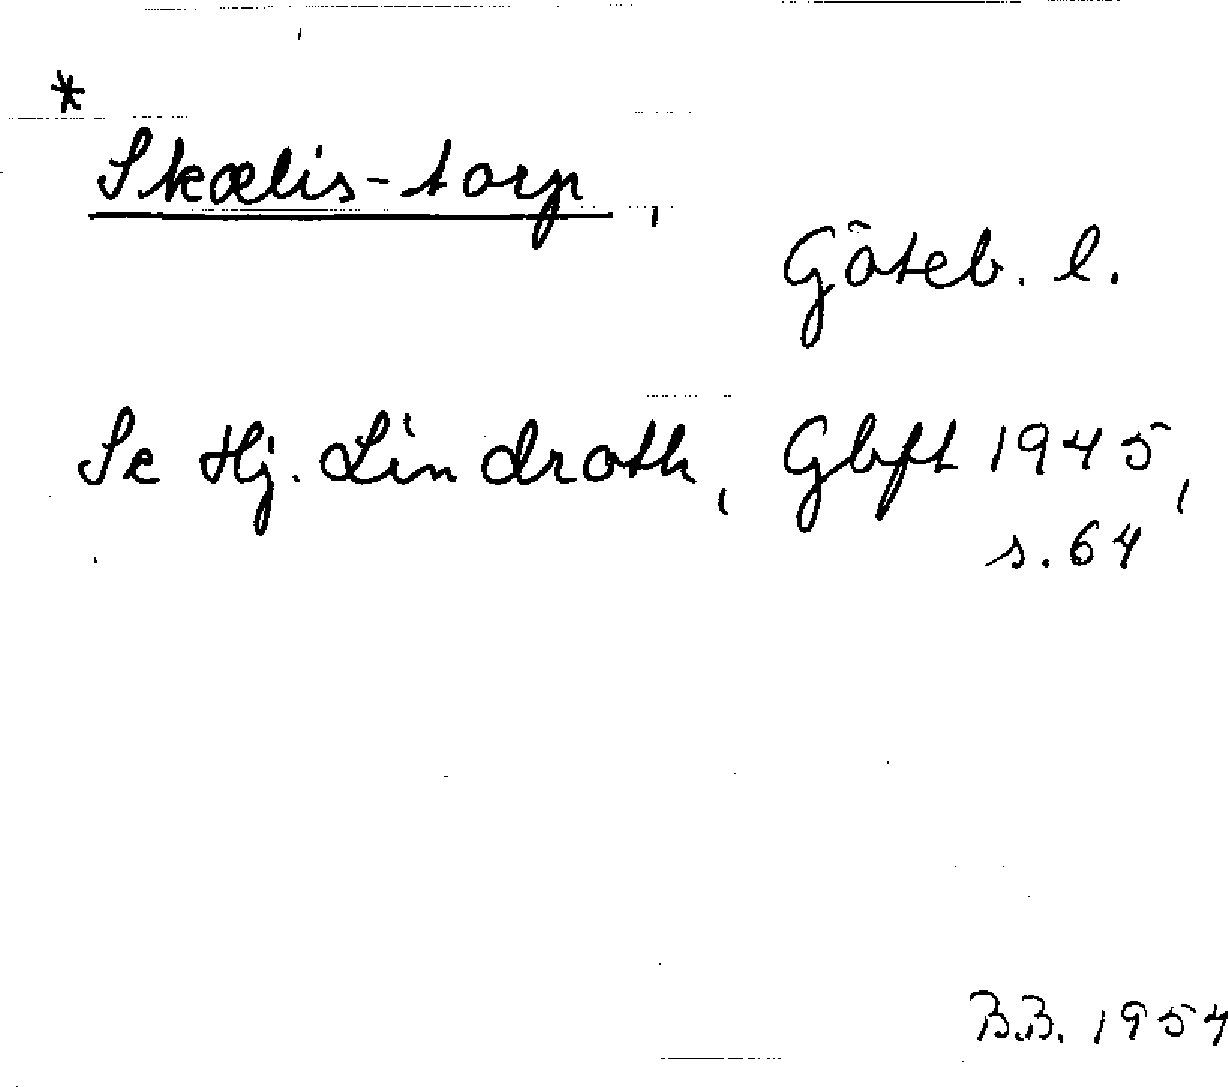 *
Skælis-torp,
Göteb. l.
Se Hj. Lindroth, Gbft 1945,
s. 64
B.B. 1954